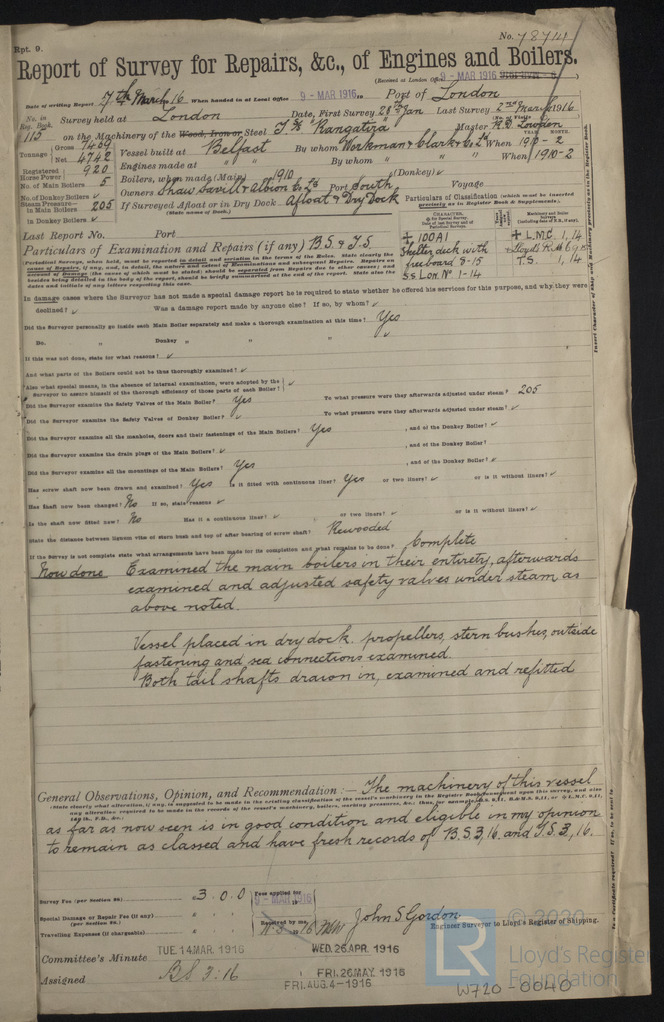 Rpt. 9.
No. 78714
Report of Survey for Repairs, &c., of Engines and Boilers.
(Received at London Office 9 - MAR 1916
Date of writing Report 7th March 16 When handed in at Local Office 9 - MAR 1916 Port of London
No. in Reg. Book. Survey held at London Date, First Survey 28th Jan Last Survey 2nd March 1916
(No. of Visits
115 on the Machinery of the Wood, Iron or Steel Rangatira Master
Tonnage Gross 7409
Net 4742
Vessel built at Belfast By whom Workman Clark & Co Ld When 1910 - 2
YEAR. MONTH.
Registered Horse Power 920
Engines made at " " By whom " " When 1910-2
No. of Main Boilers 5
Boilers, when made (Main) 1910 (Donkey) ✓
No. of Donkey Boilers ✓
Owners Shaw Savill & Albion Co Ld Port South Voyage
Steam Pressure in Main Boilers 205
in Donkey Boilers ✓
If Surveyed Afloat or in Dry Dock Afloat & Dry Dock
(State name of Dock.)
Particulars of Classification (which must be inserted precisely as in Register Book & Supplements).
Last Report No. Port
+ 100A1
Shelter deck with
freeboard 8-15
SS Lon. No 1-14
+ L.M.C. 1,14
T.S. 1,14
Particulars of Examination and Repairs (if any) B.S. & T.S.
In damage cases where the Surveyor has not made a special damage report he is required to state whether he offered his services for this purpose, and why they were
declined? ✓ Was a damage report made by anyone else? If so, by whom? ✓
Did the Surveyor personally go inside each Main Boiler separately and make a thorough examination at this time? Yes
Do. " Donkey " " " " ✓
If this was not done, state for what reasons? ✓
And what parts of the Boilers could not be thus thoroughly examined? ✓
Also what special means, in the absence of internal examination, were adopted by the
Surveyor to assure himself of the thorough efficiency of those parts of each Boiler? ✓
Did the Surveyor examine the Safety Valves of the Main Boiler? Yes To what pressure were they afterwards adjusted under steam? 205
Did the Surveyor examine the Safety Valves of Donkey Boiler? ✓ To what pressure were they afterwards adjusted under steam? ✓
Did the Surveyor examine all the manholes, doors and their fastenings of the Main Boilers? Yes , and of the Donkey Boiler? ✓
Did the Surveyor examine the drain plugs of the Main Boilers? ✓ , and of the Donkey Boiler?
Did the Surveyor examine all the mountings of the Main Boilers? Yes , and of the Donkey Boiler?
Has screw shaft now been drawn and examined? Yes Is it fitted with continuous liner? Yes or two liners? ✓ or is it without liners? ✓
Has shaft now been changed? No If so, state reasons ✓
Is the shaft now fitted new? No Has it a continuous liner? ✓ or two liners? ✓ or is it without liners? ✓
State the distance between lignum vitæ of stern bush and top of after bearing of screw shaft? Rewooded
If the Survey is not complete state what arrangements have been made for its completion and what remains to be done? Complete
Now done Examined the main boilers in their entirety, afterwards
examined and adjusted safety valves under steam as
above noted.
Vessel placed in dry dock. propellers, stern bushes, outside
fastening and sea connections examined.
Both tail shafts drawn in, examined and refitted
General Observations, Opinion, and Recommendation :— The machinery of this vessel
as far as now seen is in good condition and eligible in my opinion
to remain as classed and have fresh records of B.S. 3,16. and T.S. 3,16.
Survey Fee (per Section 28) £3.0.0 Fees applied for 9 - MAR 1916
Special Damage or Repair Fee (if any) (per Section 28.)
Travelling Expenses (if chargeable)
Received by me,
John S Gordon
Engineer Surveyor to Lloyd's Register of Shipping.
Committee's Minute TUE. 14 MAR. 1916 WED. 26 APR. 1916
Assigned BS 3:16 FRI. 26 MAY. 1916
FRI. AUG. 4 - 1916
© 2020
LR
Lloyd's Register
Foundation
W720-0040